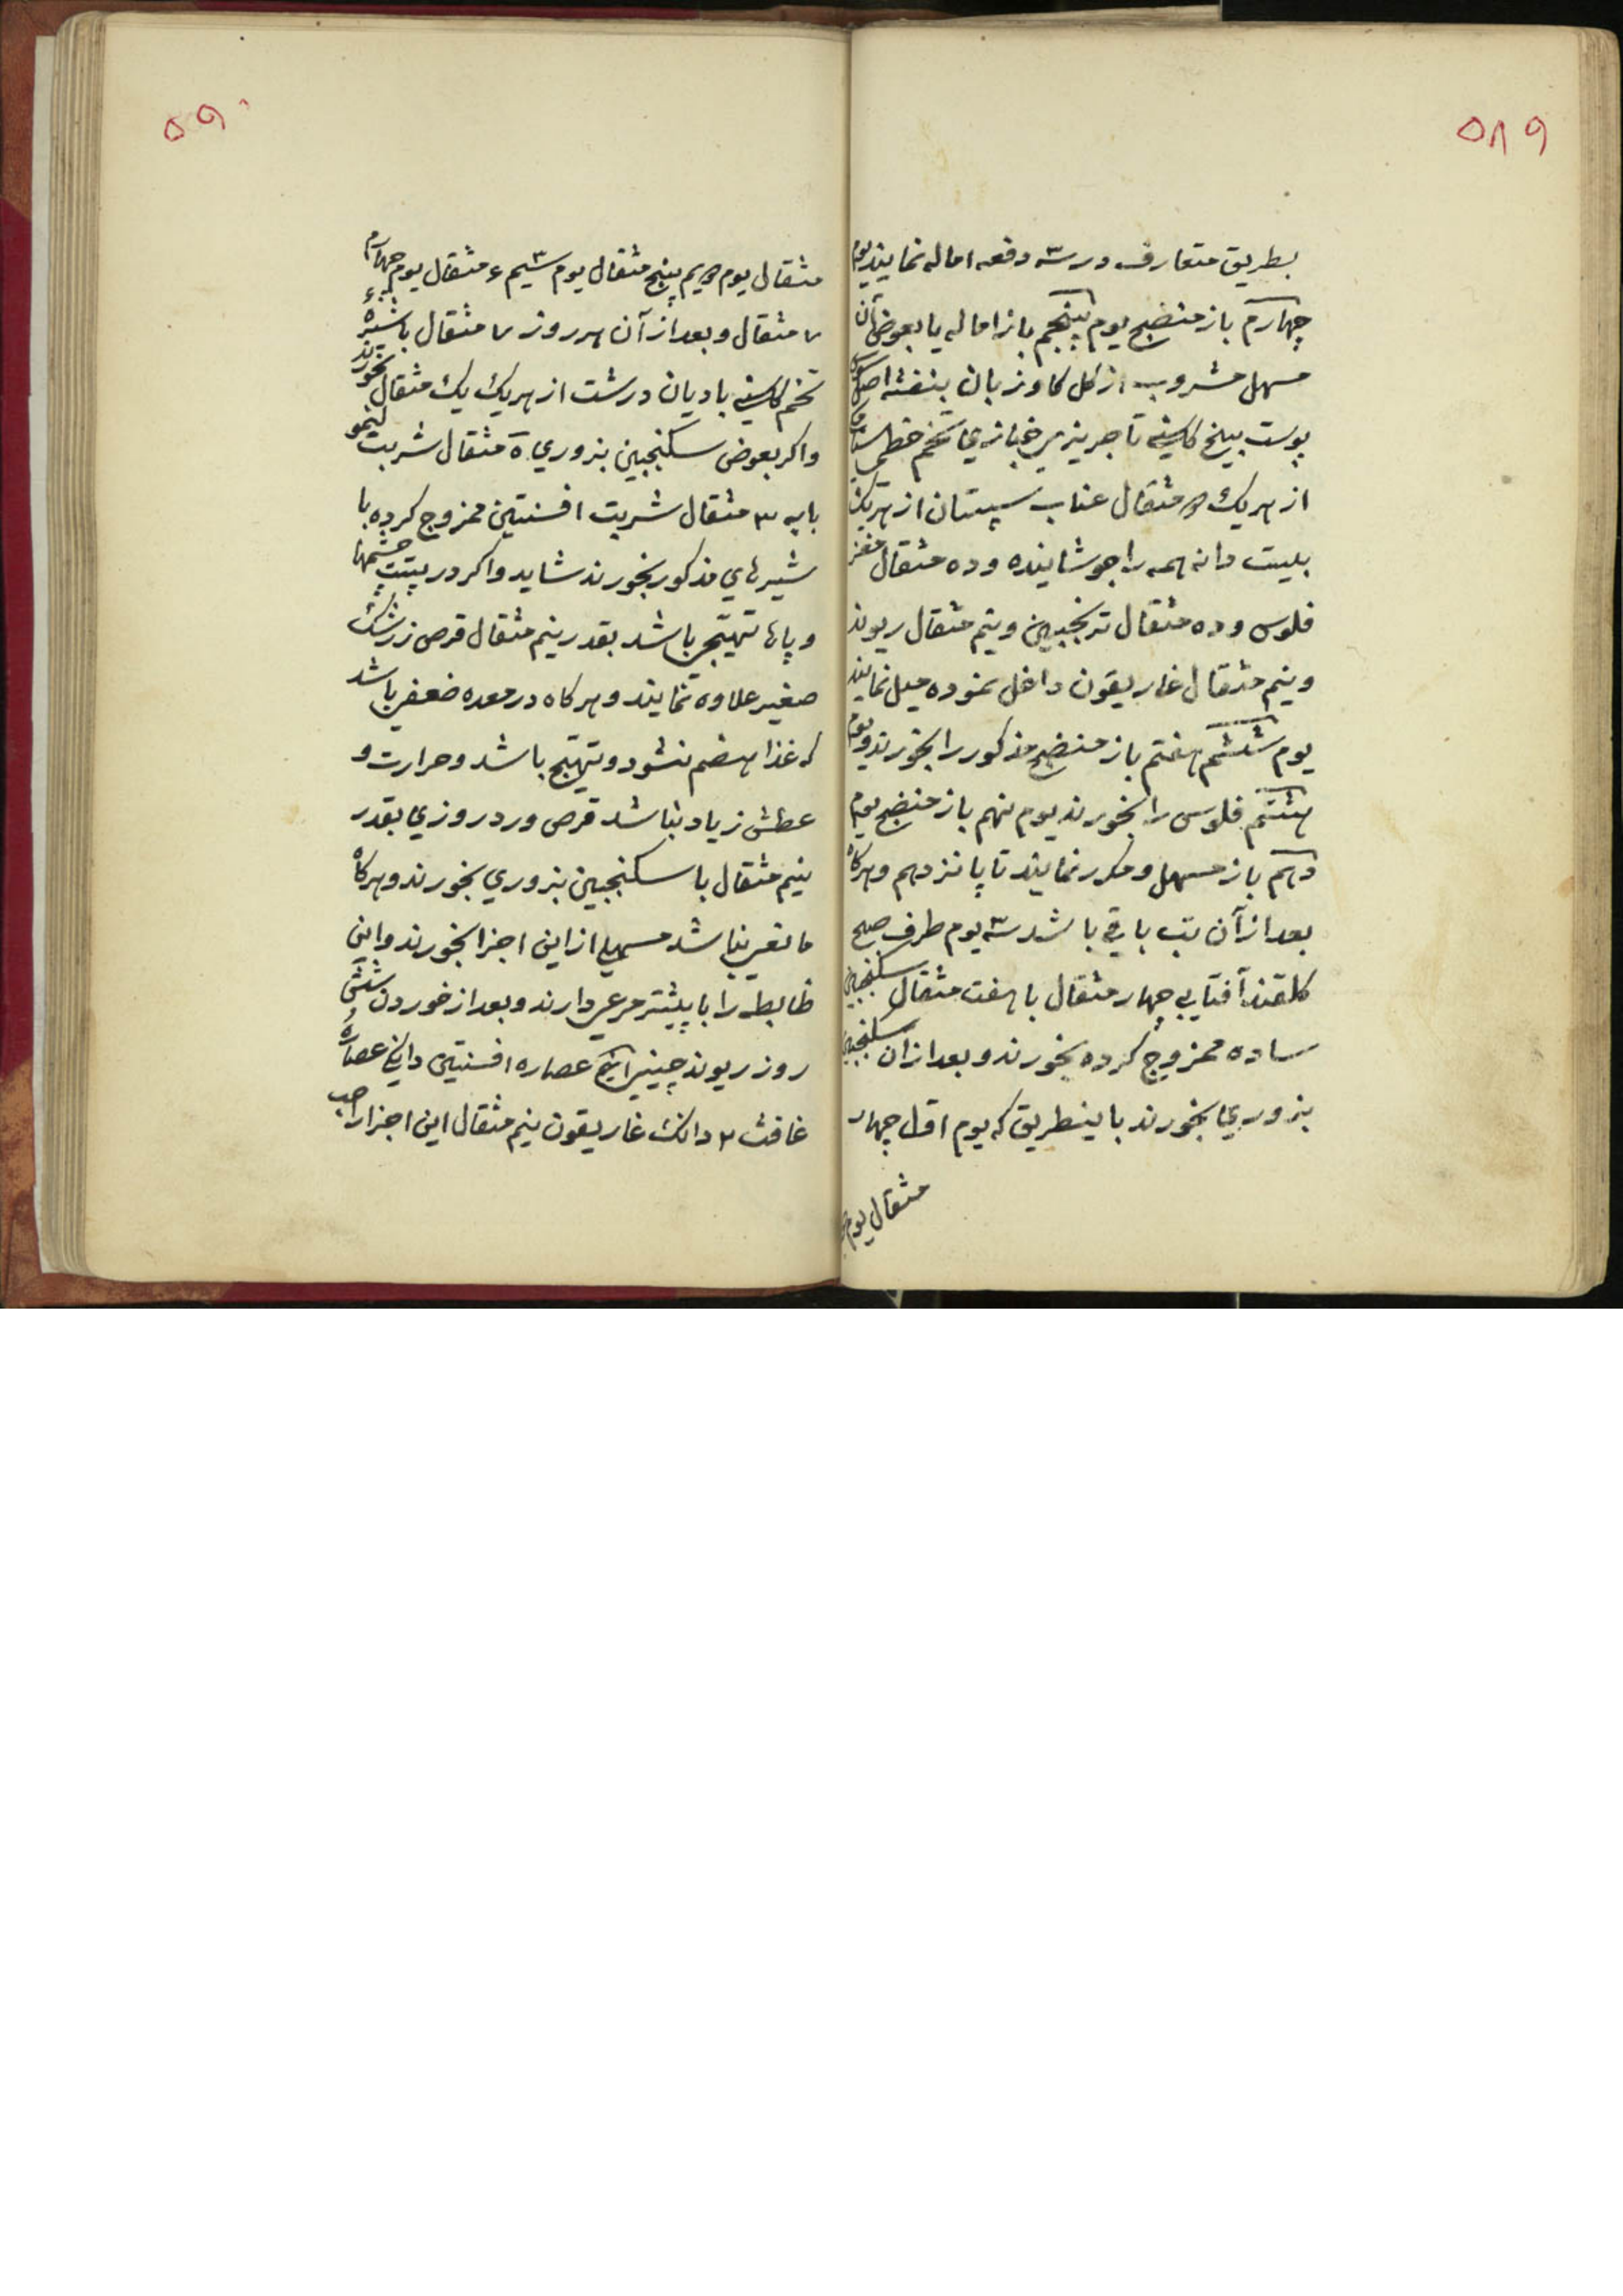 ۵۸۹
بطریق متعارف در سه دفعه اماله نمایند یوم
چهارم باز منضج یوم پنجم باز اماله یا بعوض آن
مسهل مشروب از کل کاوزبان بنفشه اصل سوس
پوست بیخ کاسنی تاجریزی خبازی تخم خطمی
از هر یک مثقال عناب سپستان از هر یک
بیست دانه همه را جوشانیده و ده مثقال مغز
فلوس و ده مثقال ترنجبین و نیم مثقال ریوند
و نیم مثقال غاریقون داخل نموده میل نمایند
یوم ششم هفتم باز منضج مذکور را بخورند و یوم
هشتم فلوس را بخورند یوم نهم باز منضج یوم
دهم باز مسهل و مکرر نمایند تا پانزدهم و هرکاه
بعد از آن تب باقی باشد سه یوم طرف صبح
کلقند آفتابی چهار مثقال با هفت مثقال سکنجبین
ساده ممزوج کرده بخورند و بعد از ان سکنجبین
بزوری بخورند باینطریق که یوم اول چهار
مثقال یوم
۵۹۰
مثقال یوم دویم پنج مثقال یوم سیم ۶ مثقال یوم چهارم
۷ مثقال و بعد از آن هر روز ۷ مثقال با شیرهٔ
تخم کاسنی بادیان درشت از هر یک یک مثقال بخورند
و اکر بعوض سکنجبین بزوری ۵ مثقال شربت لیمو
با ۳ مثقال شربت افسنتین ممزوج کرده با
شیرهای مذکور بخورند شاید و اکر در پشت چشمها
و پاها تهیجی باشد بقدر نیم مثقال قرص زرشک
صغیر علاوه نمایند و هرکاه در معده ضعفی باشد
که غذا هضم نشود و تهیج باشد و حرارت و
عطش زیاد نباشد قرص ورد روزی بقدر
نیم مثقال با سکنجبین بزوری بخورند و هرکاه
مانعی نباشد مسهلی از این اجزا بخورند و این
ظابطه را با پیشتر مرعی دارند و بعد از خوردن شش
روز ریوند چینی عصاره افسنتین دانکی عصارهٔ
غافث ۲ دانک غاریقون نیم مثقال این اجزا را حب